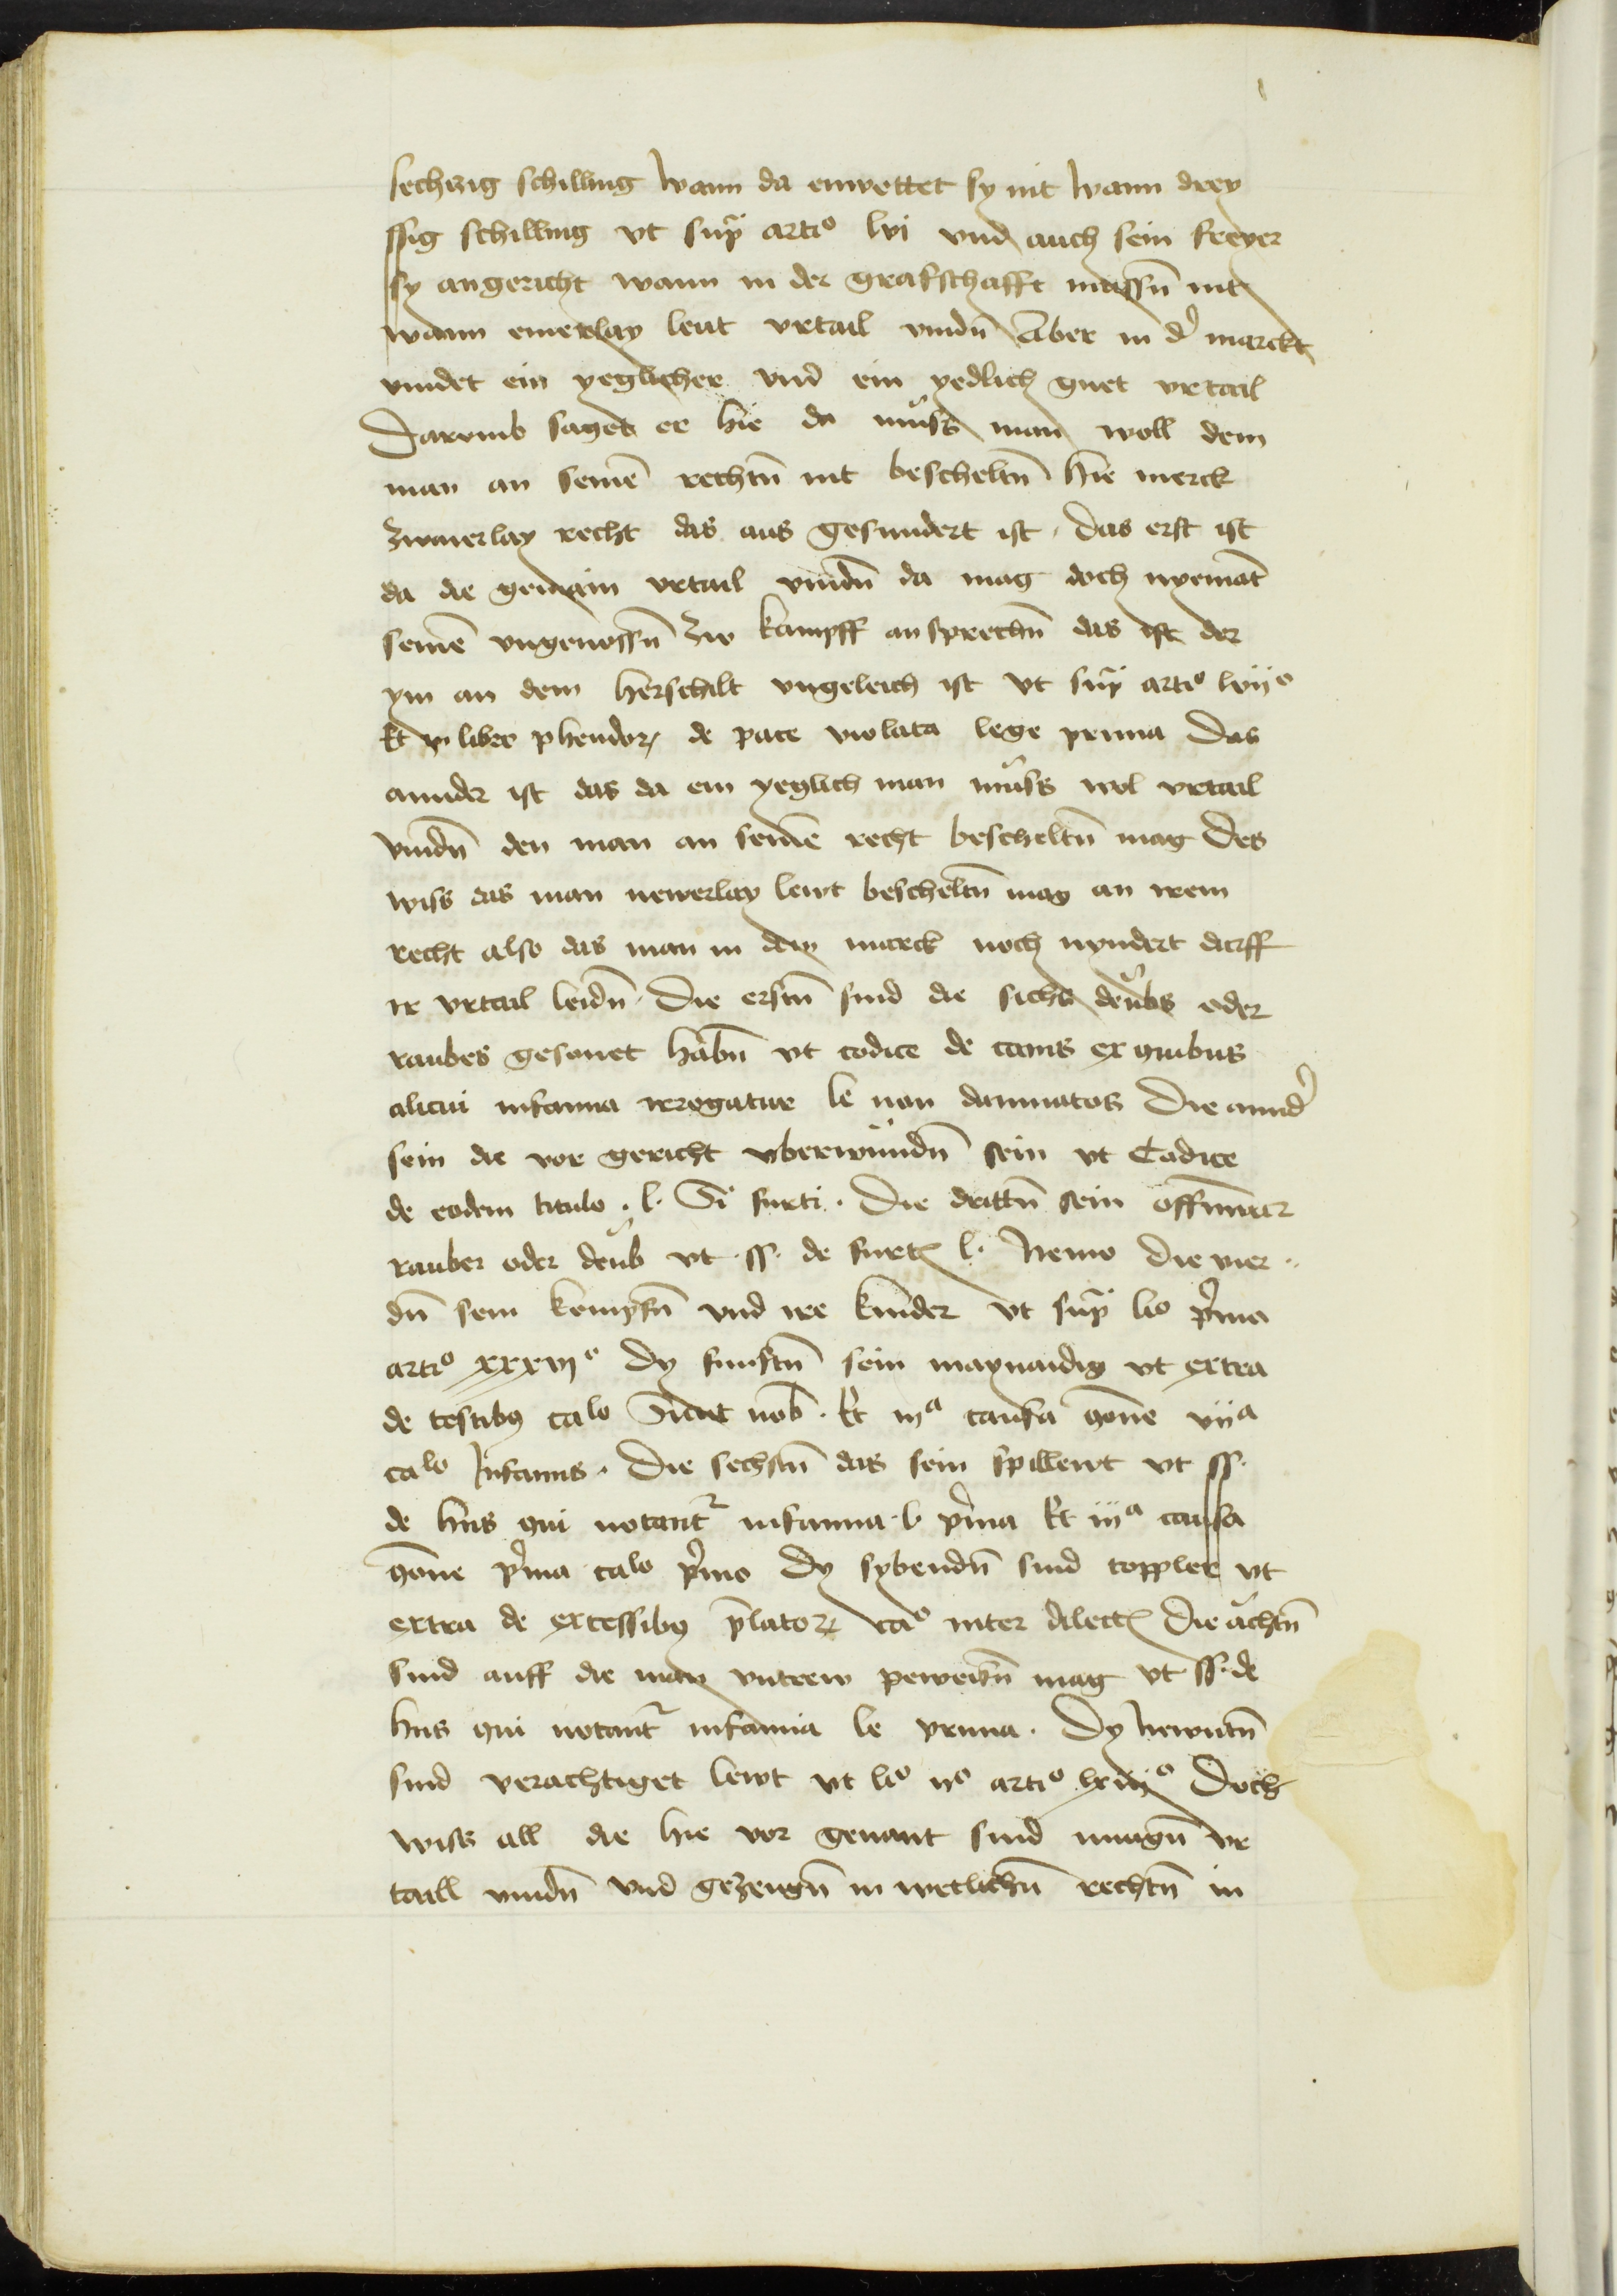 sechtzig schilling wann da enwettet sy nit wann drey
ssig schilling vt supͣ artio lvi vnd auch sein freyer
sy an gericht wann in der grafschafft mussn̄ nit
wann einerlay leut vrtail vindn̄ Aber in dʾ marckt
vindet ein yeglicher vnd ein yedlich guet vrtail
Darvmb saget er hie da müss man woll dem
man an seinē rechtn̄ nit bescheltn̄ hie merck
Zwaierlay recht das aus gesundert ist · das erst ist
da die gemain vrtail vindn̄ da mag doch nyemāt
seinē vngenossn̄ Zw kampff an sprechn̄ das ist der
ym an dem herschilt vngeleich ist vt supͣ artio lviio
Et in liber phendoꝝ de pace violata lege prima Das
annder ist das da ein yeglich man müss wol vrtail
vindn̄ den man an seinē recht bescheltn̄ mag Des
wiss das man newerlay lewt bescheltn̄ mag an irem
recht also das man in dem marck noch nyndert dürff
ir vrtail leidn̄ · Die erstn̄ sind die sichs deübs oder
raubes gesonet habn̄ vt codice de cauis ex quibus
alicui infamia irrogatur le non damnatos Die anndʾ
sein die vor gericht vberwundn̄ sein vt Codice
de eodem titulo · l · Si furti · Die drittn̄ sein offnnwar
rauber oder deüb vt · ff · de furtꝭ l · Nemo Die vier
dn̄ sein kempfn̄ vnd ire kinder vt supͣ lio pʾmo
artio xxxvio Dy funftn̄ sein maynaidig vt extra
de testibꝰ calo Sicut nob̄ · Et iiia causa qōne viia
calo Infamis · Die sechstn̄ das sein spillewt vt ff ·
de hiis qui notantᷣ infamia · l · pʾma Et iiia causa
qōne pʾma calo pʾmo Dy sybendn̄ sind toppler vt
extra de excessibꝰ p̄latoꝝ cao inter dilectꝭ Die achtn̄
sind auff die man vntrew peweisn̄ mag vt ff · de
hiis qui notantᷣ infamia le prima · Dy Newntn̄
sind verachtiget lewt vt lio iio artio lxiiio Doch
wiss all die hie vor genant sind mugn̄ vr
taill vindn̄ vnd gezeugn̄ in wetlichn̄ rechtn̄ in